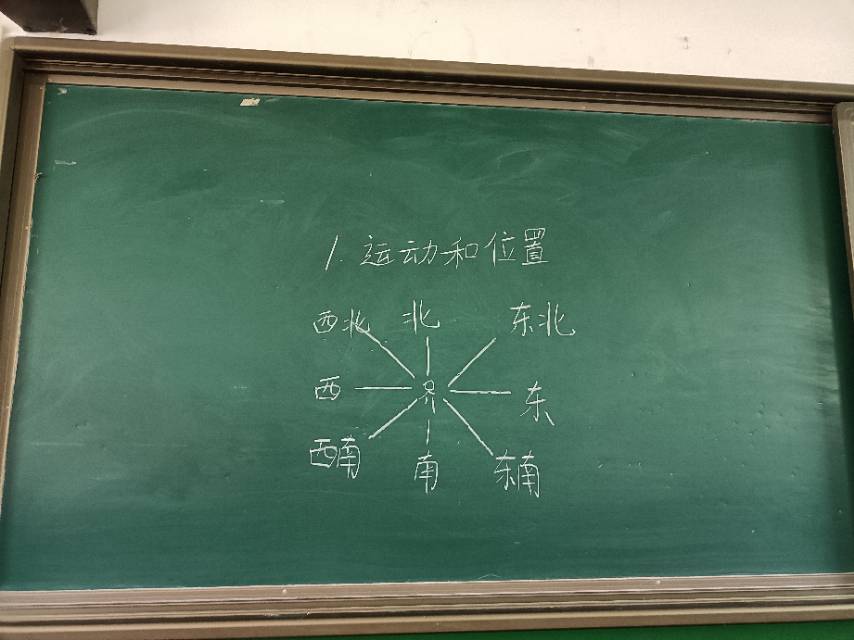 1. 运动和位置
西北 北 东北
西 东
西南 南 东南